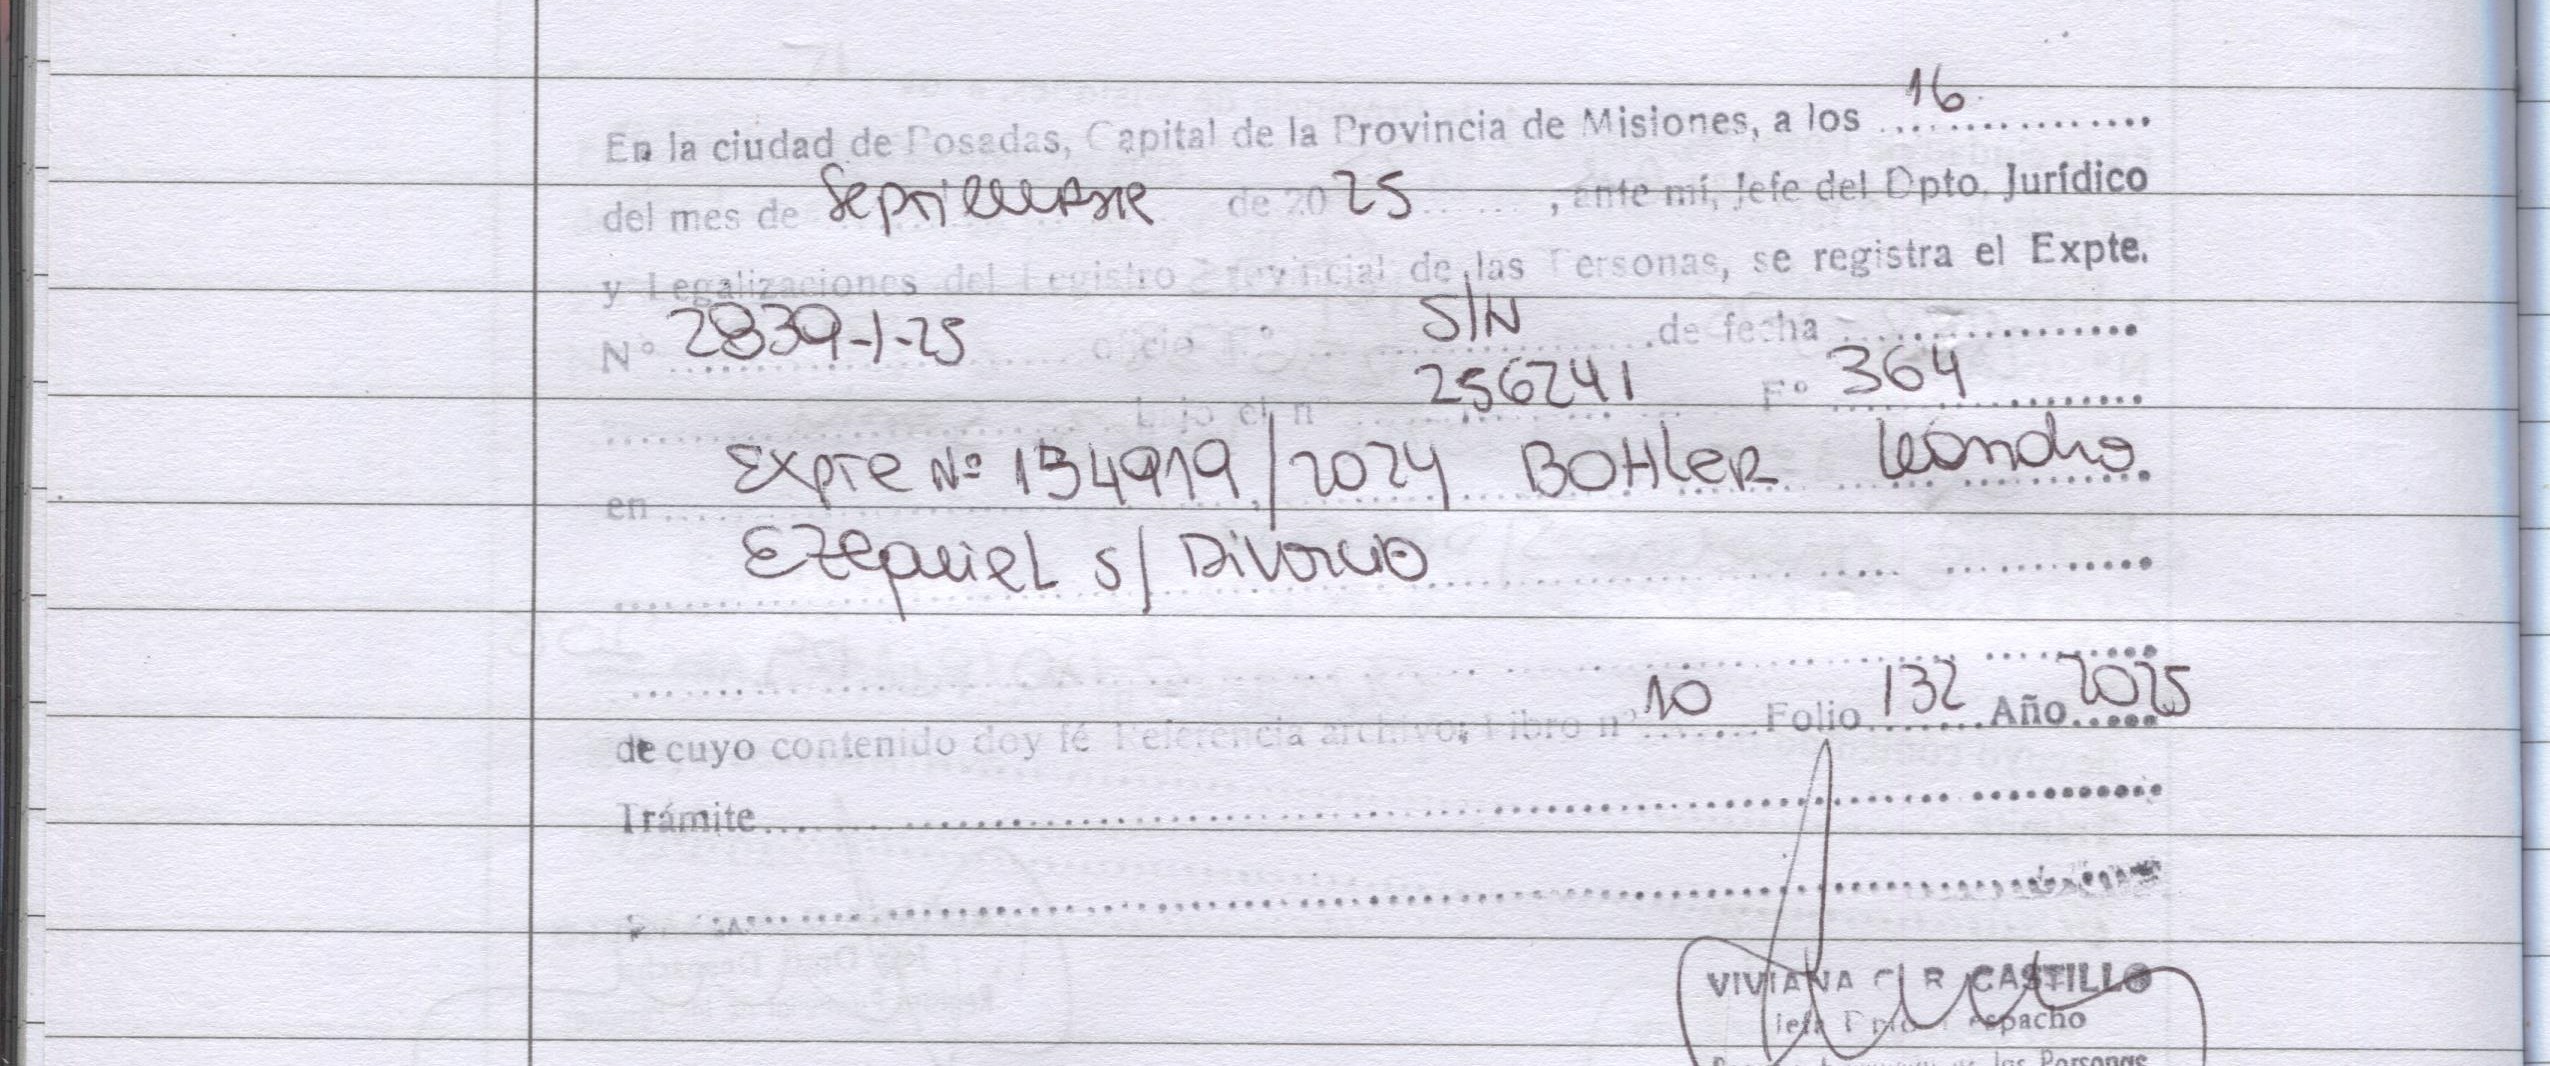 En la ciudad de Posadas, Capital de la Provincia de Misiones, a los 16
del mes de Septiembre de 2025, ante mí, Jefe del Dpto. Jurídico
y Legalizaciones del Registro Provincial de las Personas, se registra el Expte.
Nº 2839-1-25 oficio Nº S/N de fecha
bajo el nº 256241 Fº 364
en Expte Nº 154919/2024 BOHLER Leandro
Ezequiel s/ Divorcio
de cuyo contenido doy fé Referencia archivo: Libro nº 10 Folio 132 Año 2025
Trámite
VIVIANA R CASTILLO
Jefa Dpto Despacho
las Personas